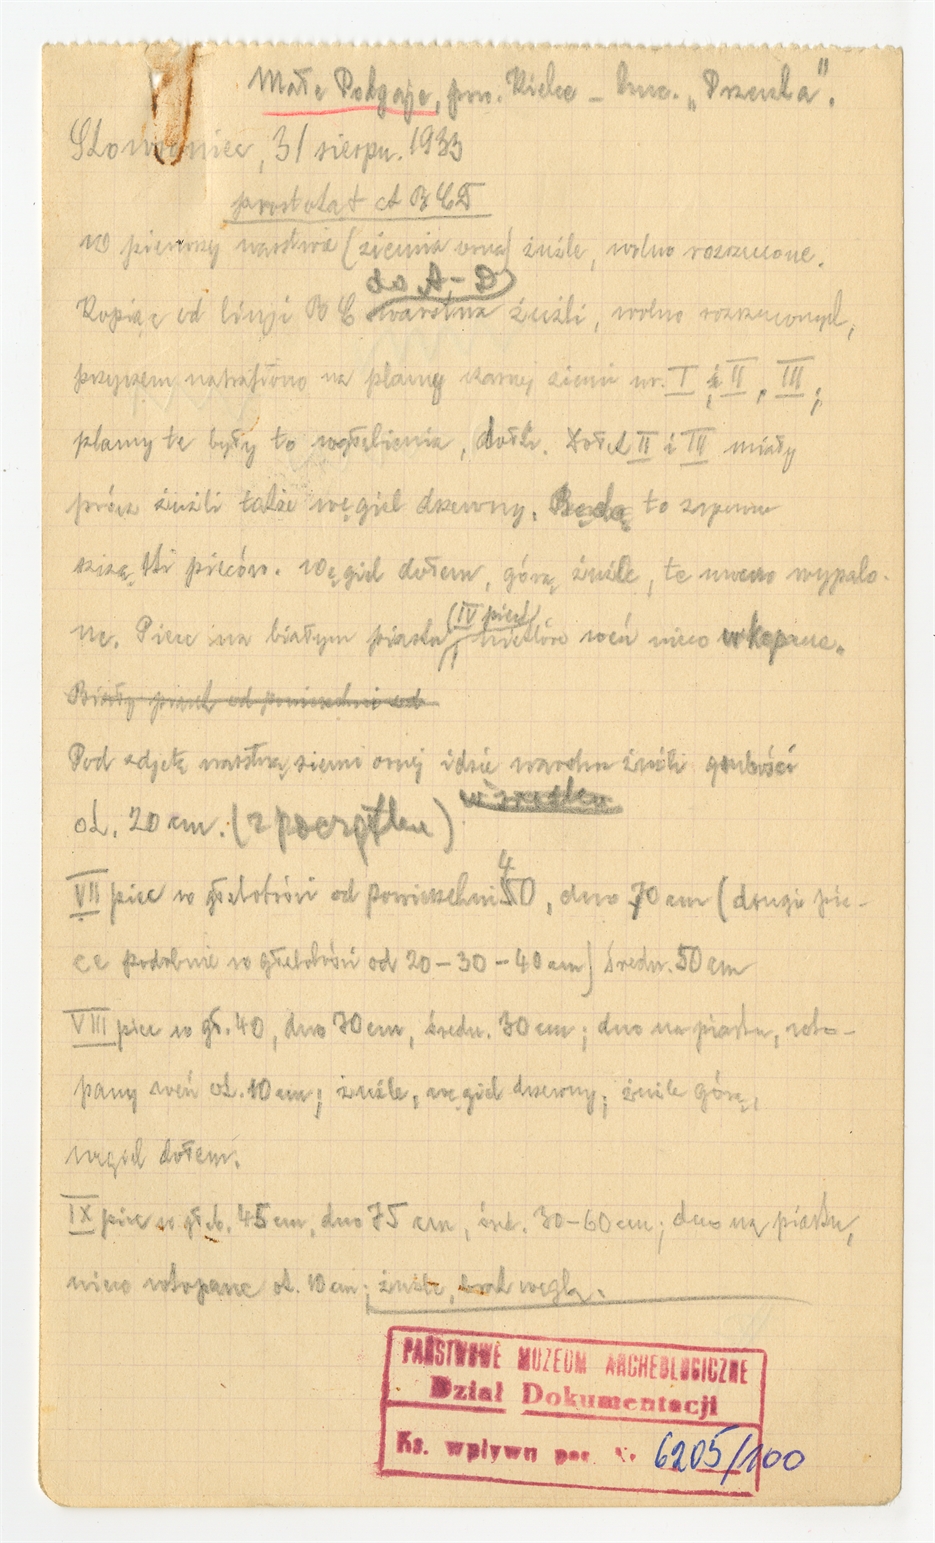 Małe Podgaje, pow. Kielce – "Przcula".
Słowaniec, 31 sierpn. 1933
prostokąt ABCD
W pierwszej warstwie (ziemia orna) żużle, wolno rozrzucone.
do A–D
Kopiąc od linji BC warstwa żużli, wolno rozrzuconych,
przyczem natrafiono na plamy czarnej ziemi nr. I i II, III;
plamy te były to wgłębienia, dołki. Dołek II i III miały
prócz żużli także węgiel drzewny. Będą to zapewne
szczątki pieców. Węgiel dołem, górą żużle, te nieco wypalo-
(IV piec)
ne. Piece na białym piasku, niektóre weń nieco wkopane.
Biały piasek od powierzchni od
Pod zdjętą warstwą ziemi ornej idzie warstwa żużli grubości
w środku
ok. 20 cm. (z początku)
4
VII piec w głębokości od powierzchni 50, dno 70 cm (drugi pie-
ce podobnie w głębokości od 20–30–40 cm) średn. 50 cm
VIII piec w gł. 40, dno 70 cm, średn. 30 cm; dno na piasku, wko-
pany weń ok. 10 cm; żużle, węgiel drzewny; żużle górą,
węgiel dołem.
IX piec w głęb. 45 cm, dno 75 cm, śred. 30–60 cm; dno na piasku,
nieco wkopane ok. 10 cm; żużle, brak węgla.
PAŃSTWOWE MUZEUM ARCHEOLOGICZNE
Dział Dokumentacji
Ks. wpływu poz. Nr. 6205/100